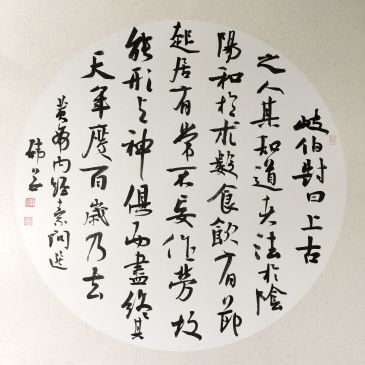 岐伯對曰上古
之人其知道者法於陰
陽和於术數食飲有節
起居有常不妄作勞故
能形与神俱而盡終其
天年度百歲乃去
黃帝內經素問選